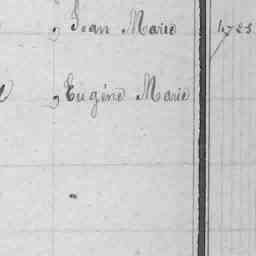 , Jean Marie
, Eugène Marie